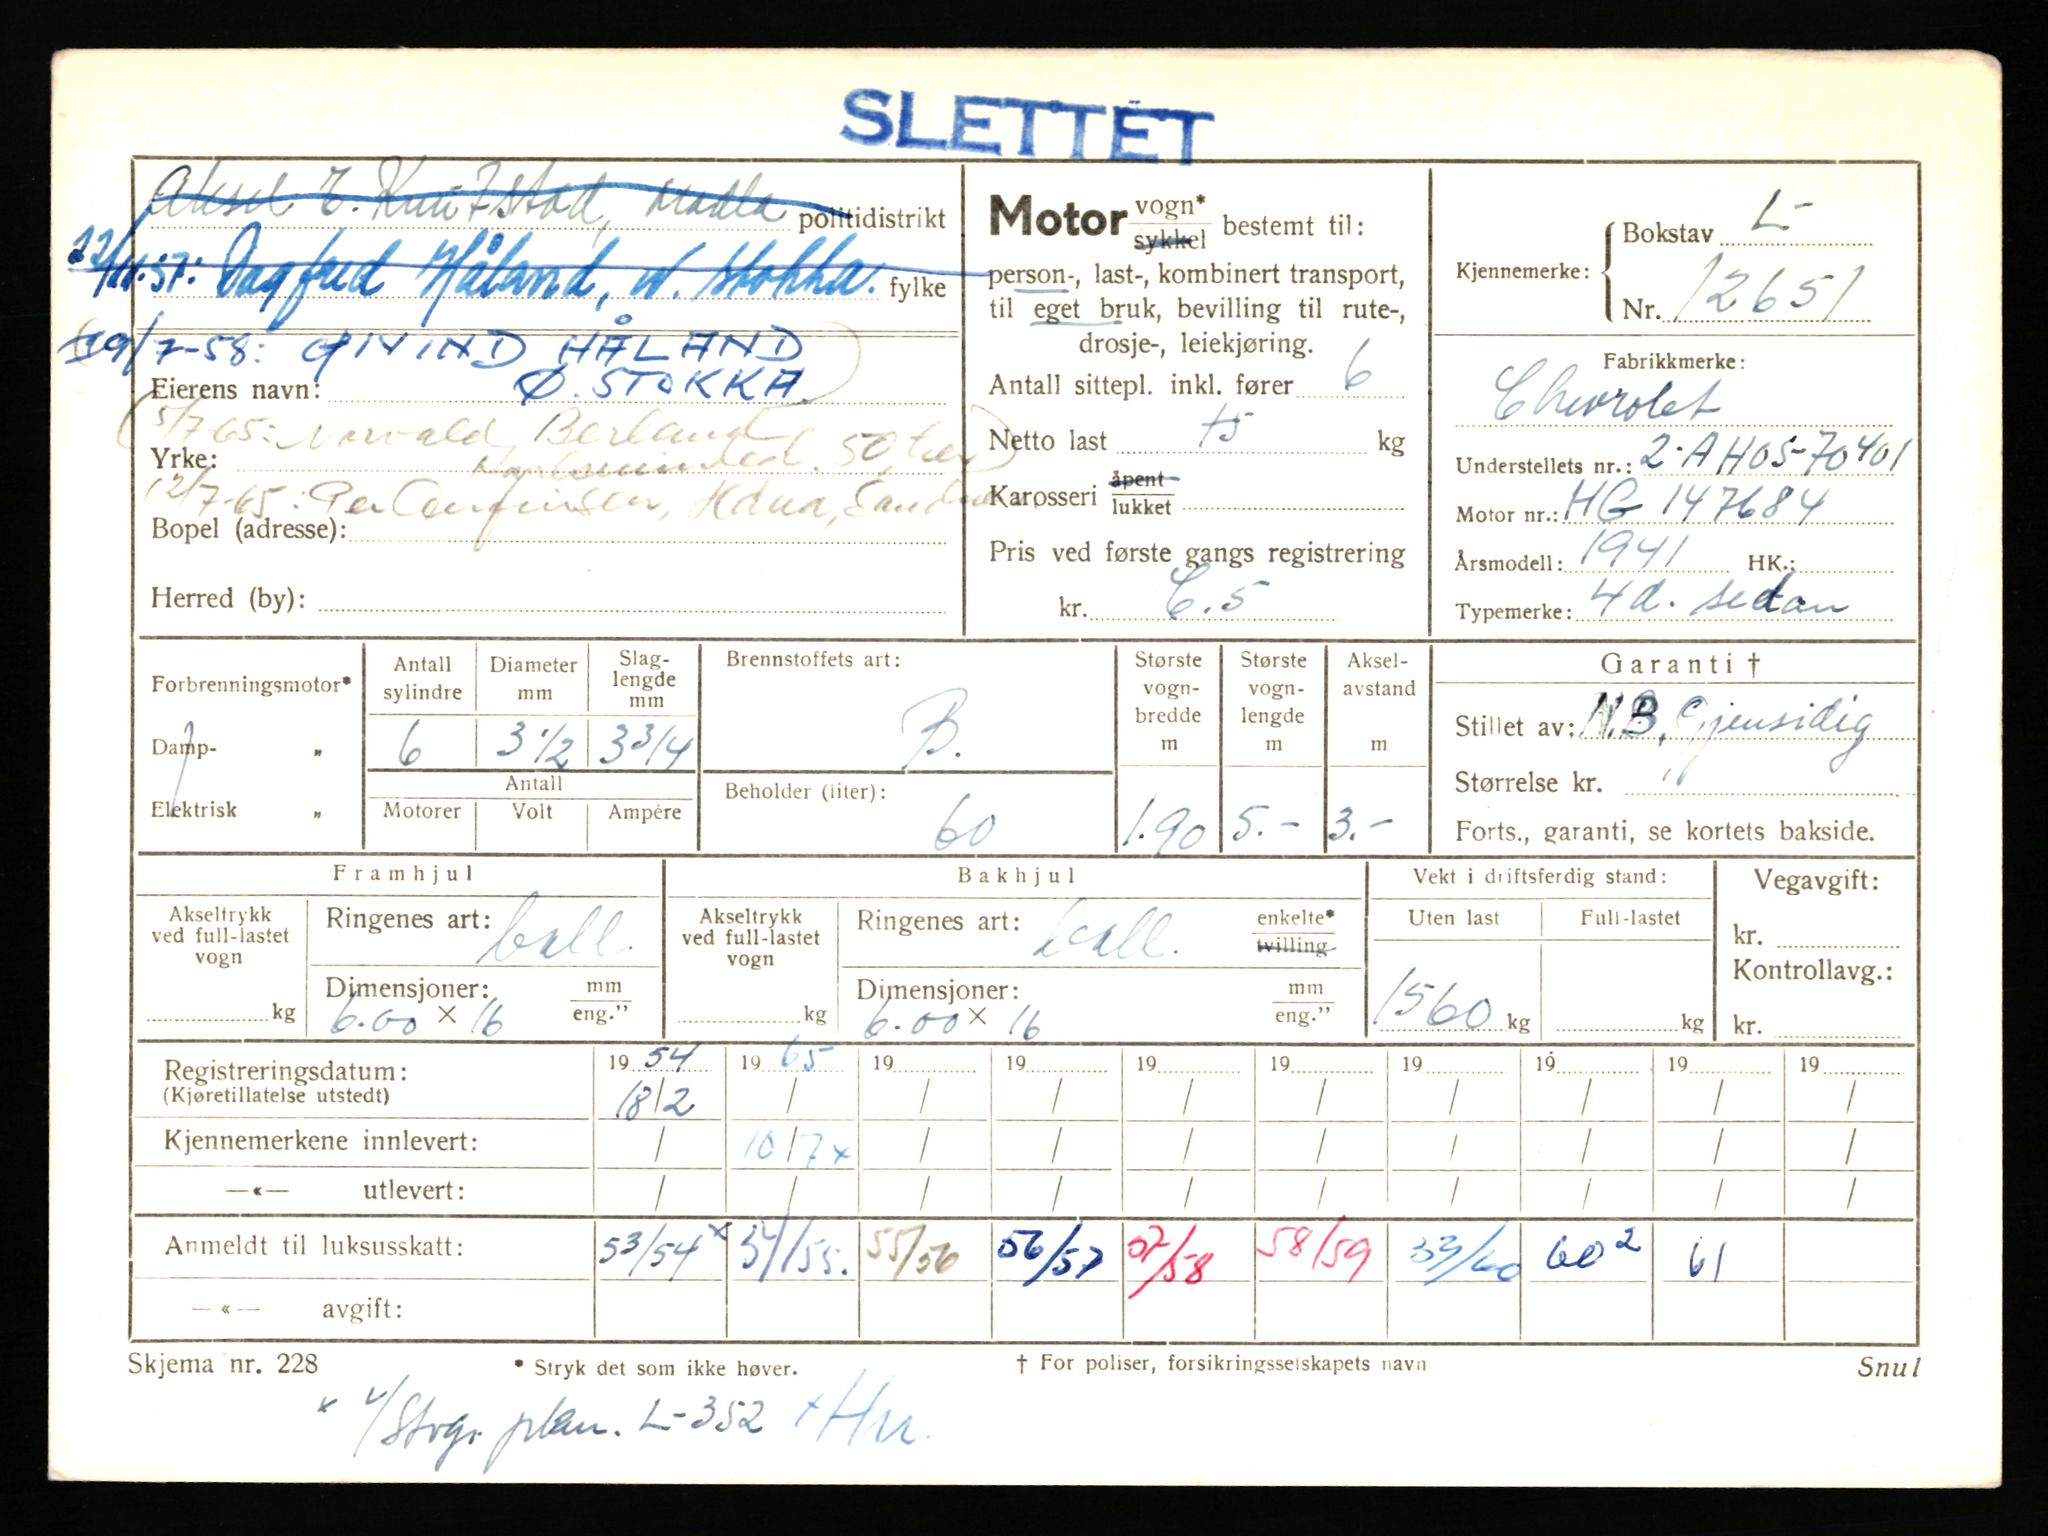 SLETTET
politidistrikt
22/11.57: Dagfred Håland, V. Stokka. fylke
19/7-58: ØIVIND HÅLAND
Eierens navn: Ø. STOKKA.
5/7-65: Norvald Berland
Yrke:
12/7-65: Per
Bopel (adresse):
Herred (by):
Motor vogn* sykkel bestemt til:
person-, last-, kombinert transport,
til eget bruk, bevilling til rute-,
drosje-, leiekjøring.
Antall sittepl. inkl. fører 6
Netto last 75 kg
Karosseri åpent lukket
Pris ved første gangs registrering
kr. C.5
Kjennemerke:
Bokstav L-
Nr. 12651
Fabrikkmerke:
Chevrolet
Understellets nr.: 2-AH05-70401
Motor nr.: HG 147684
Årsmodell: 1941 HK.:
Typemerke: 4d. sedan
Forbrenningsmotor*
Damp- „
Elektrisk „
Antall sylindre
Diameter mm
Slag-lengde mm
6 3 1/2 3 3/4
Antall
Motorer Volt Ampére
Brennstoffets art:
B.
Beholder (liter):
60
Største vogn-bredde m
1.90
Største vogn-lengde m
5.-
Aksel-avstand m
3.-
Garanti †
Stillet av: N.B. Gjensidig
Størrelse kr.
Forts., garanti, se kortets bakside.
Framhjul
Akseltrykk ved full-lastet vogn
kg
Ringenes art: ball.
Dimensjoner: mm eng.”
6.00 × 16
Bakhjul
Akseltrykk ved full-lastet vogn
kg
Ringenes art: ball. enkelte* tvilling
Dimensjoner: mm eng.”
6.00 × 16
Vekt i driftsferdig stand:
Uten last Full-lastet
1560 kg kg
Vegavgift:
kr.
Kontrollavg.:
kr.
Registreringsdatum: 19 54 19 65 19 19 19 19 19 19 19 19
(Kjøretillatelse utstedt) 18/2 / / / / / / / / /
Kjennemerkene innlevert: / 10/7 x / / / / / / / /
—«— utlevert: / / / / / / / / / /
Anmeldt til luksusskatt: 53/54 x 54/55. 55/56 56/57 57/58 58/59 59/60 60 2 61
—«— avgift:
Skjema nr. 228 * Stryk det som ikke høver. † For poliser, forsikringsselskapets navn Snul
plan. L-352